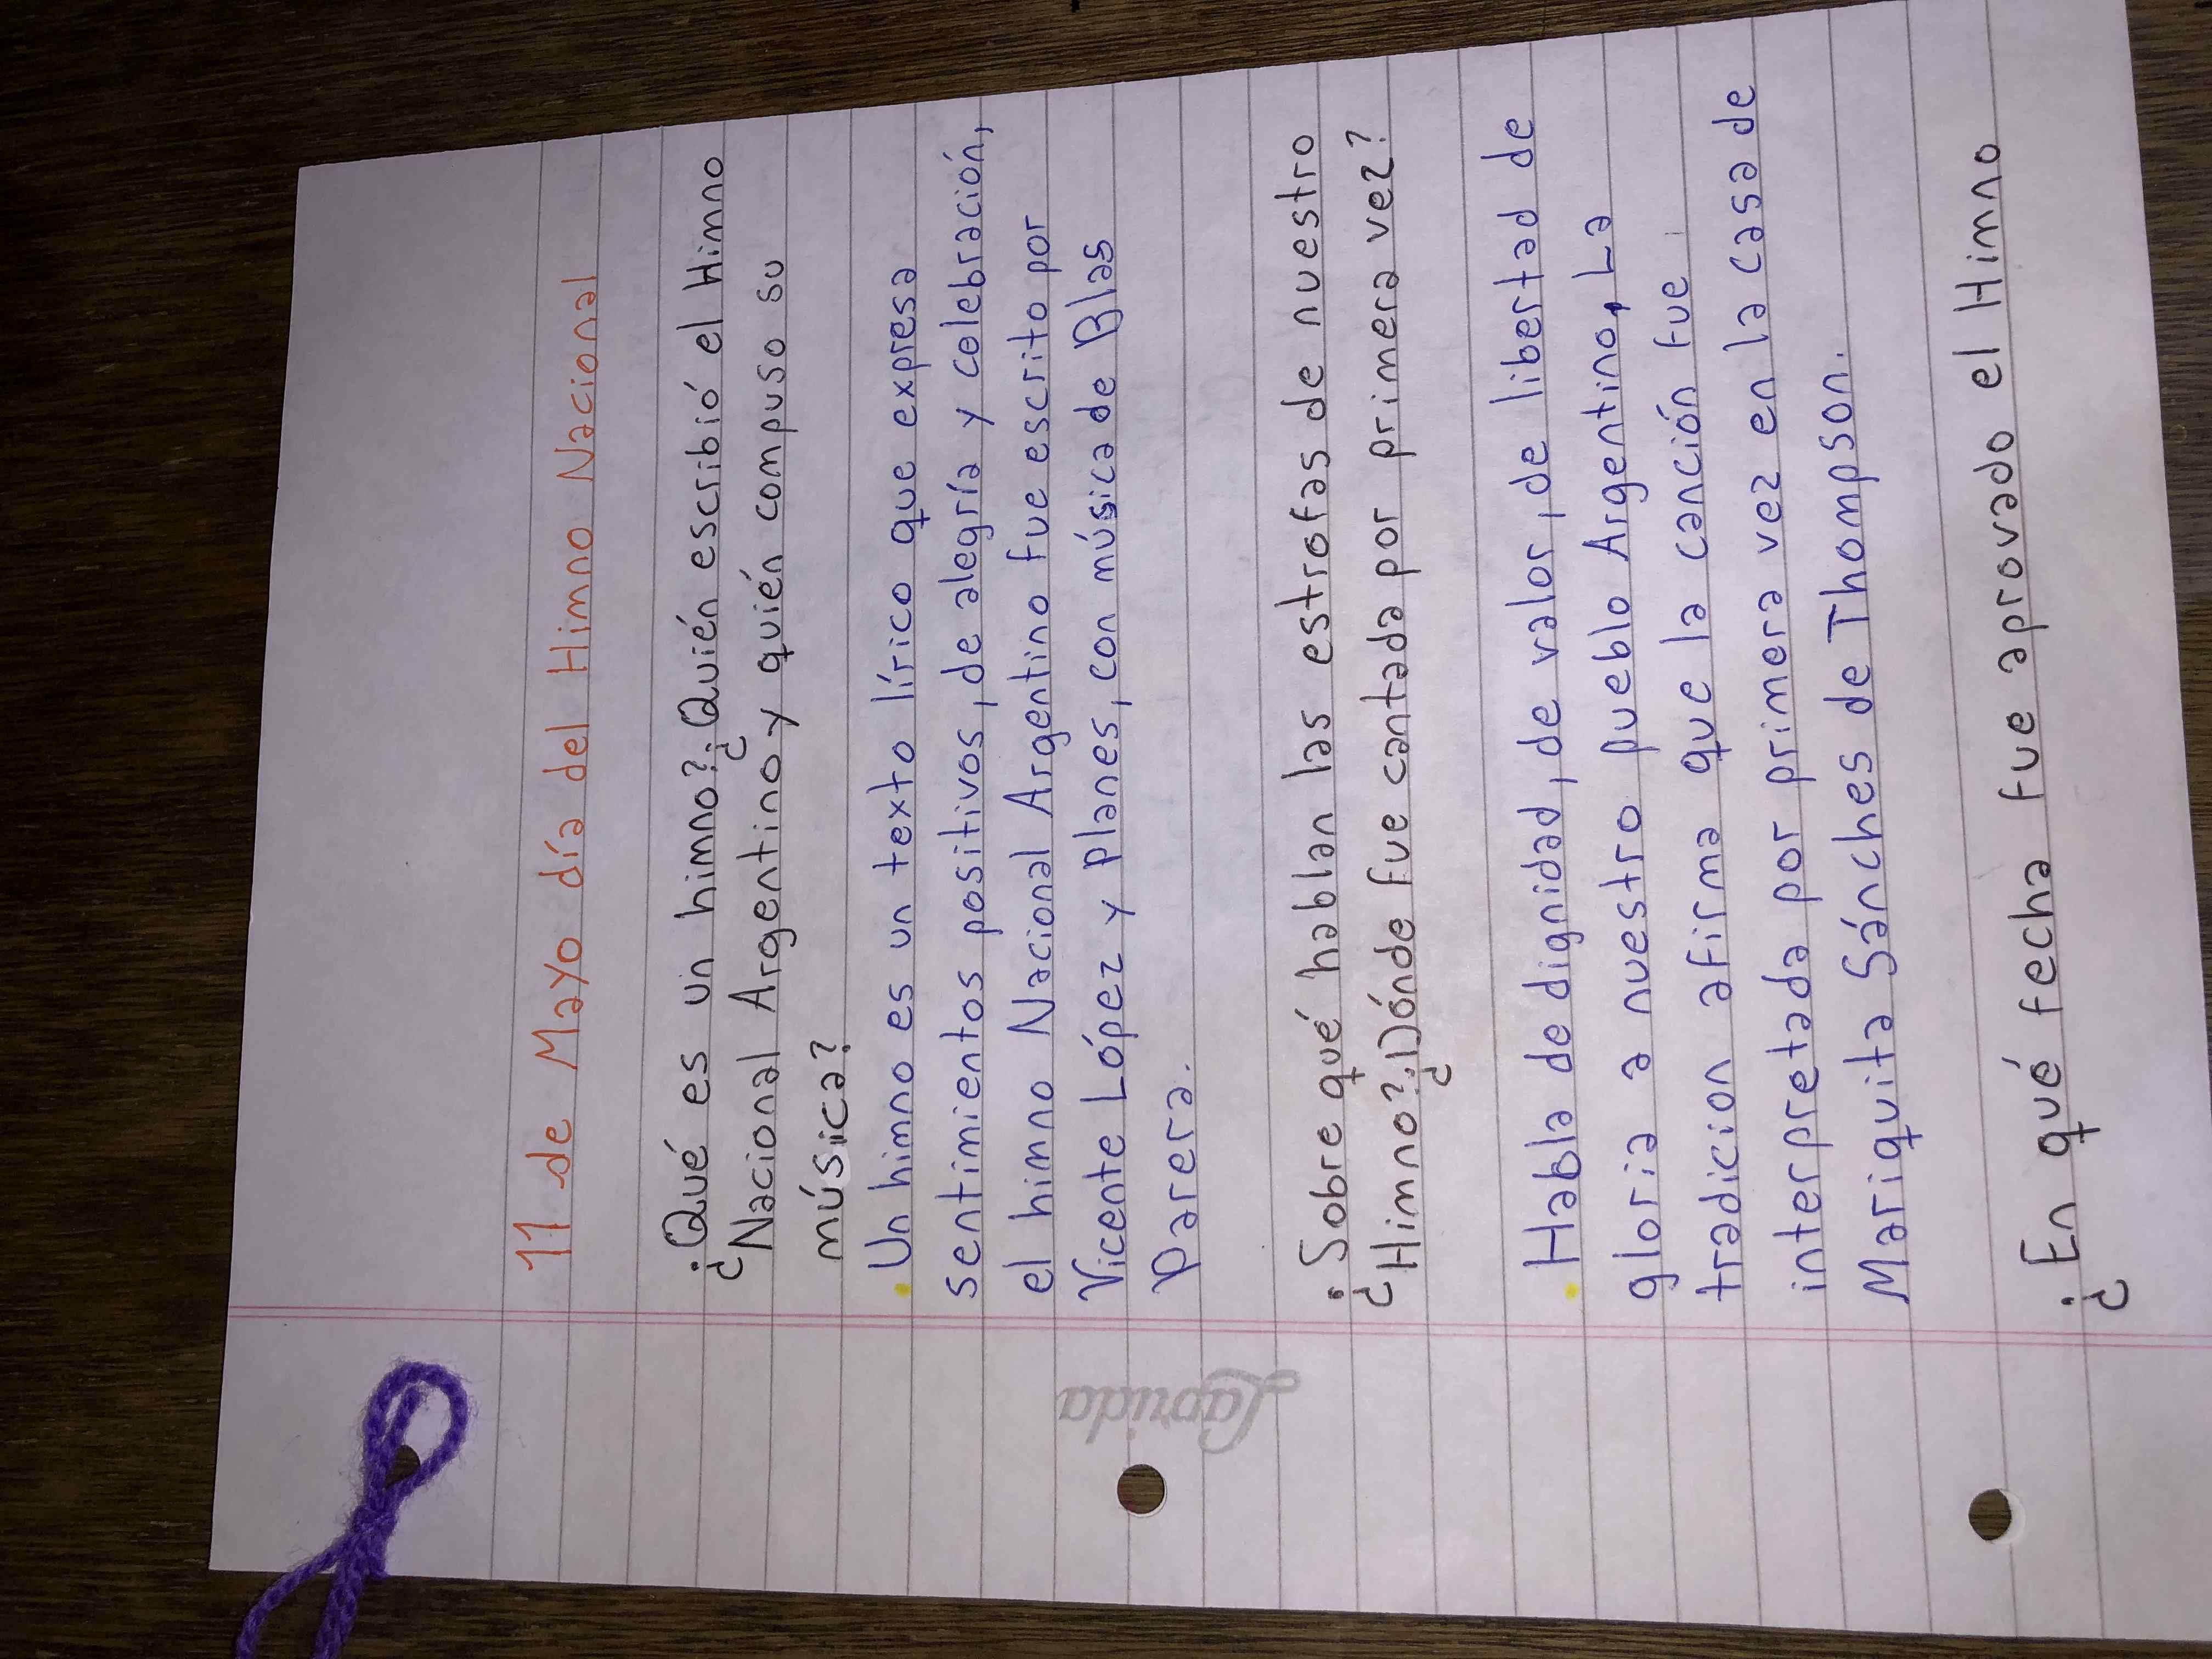 11 de Mayo día del Himno Nacional
¿Qué es un himno? ¿Quién escribió el Himno
Nacional Argentino y quién compuso su
música?
Un himno es un texto lírico que expresa
sentimientos positivos, de alegría y celebración,
el himno Nacional Argentino fue escrito por
Vicente López y planes, con música de Blas
Parera.
¿Sobre qué hablan las estrofas de nuestro
Himno? ¿Dónde fue cantada por primera vez?
Habla de dignidad, de valor, de libertad de
gloria a nuestro pueblo Argentino, La
tradicion afirma que la canción fue
interpretada por primera vez en la casa de
Mariquita Sánches de Thompson.
¿En qué fecha fue aprovado el Himno
Laprida